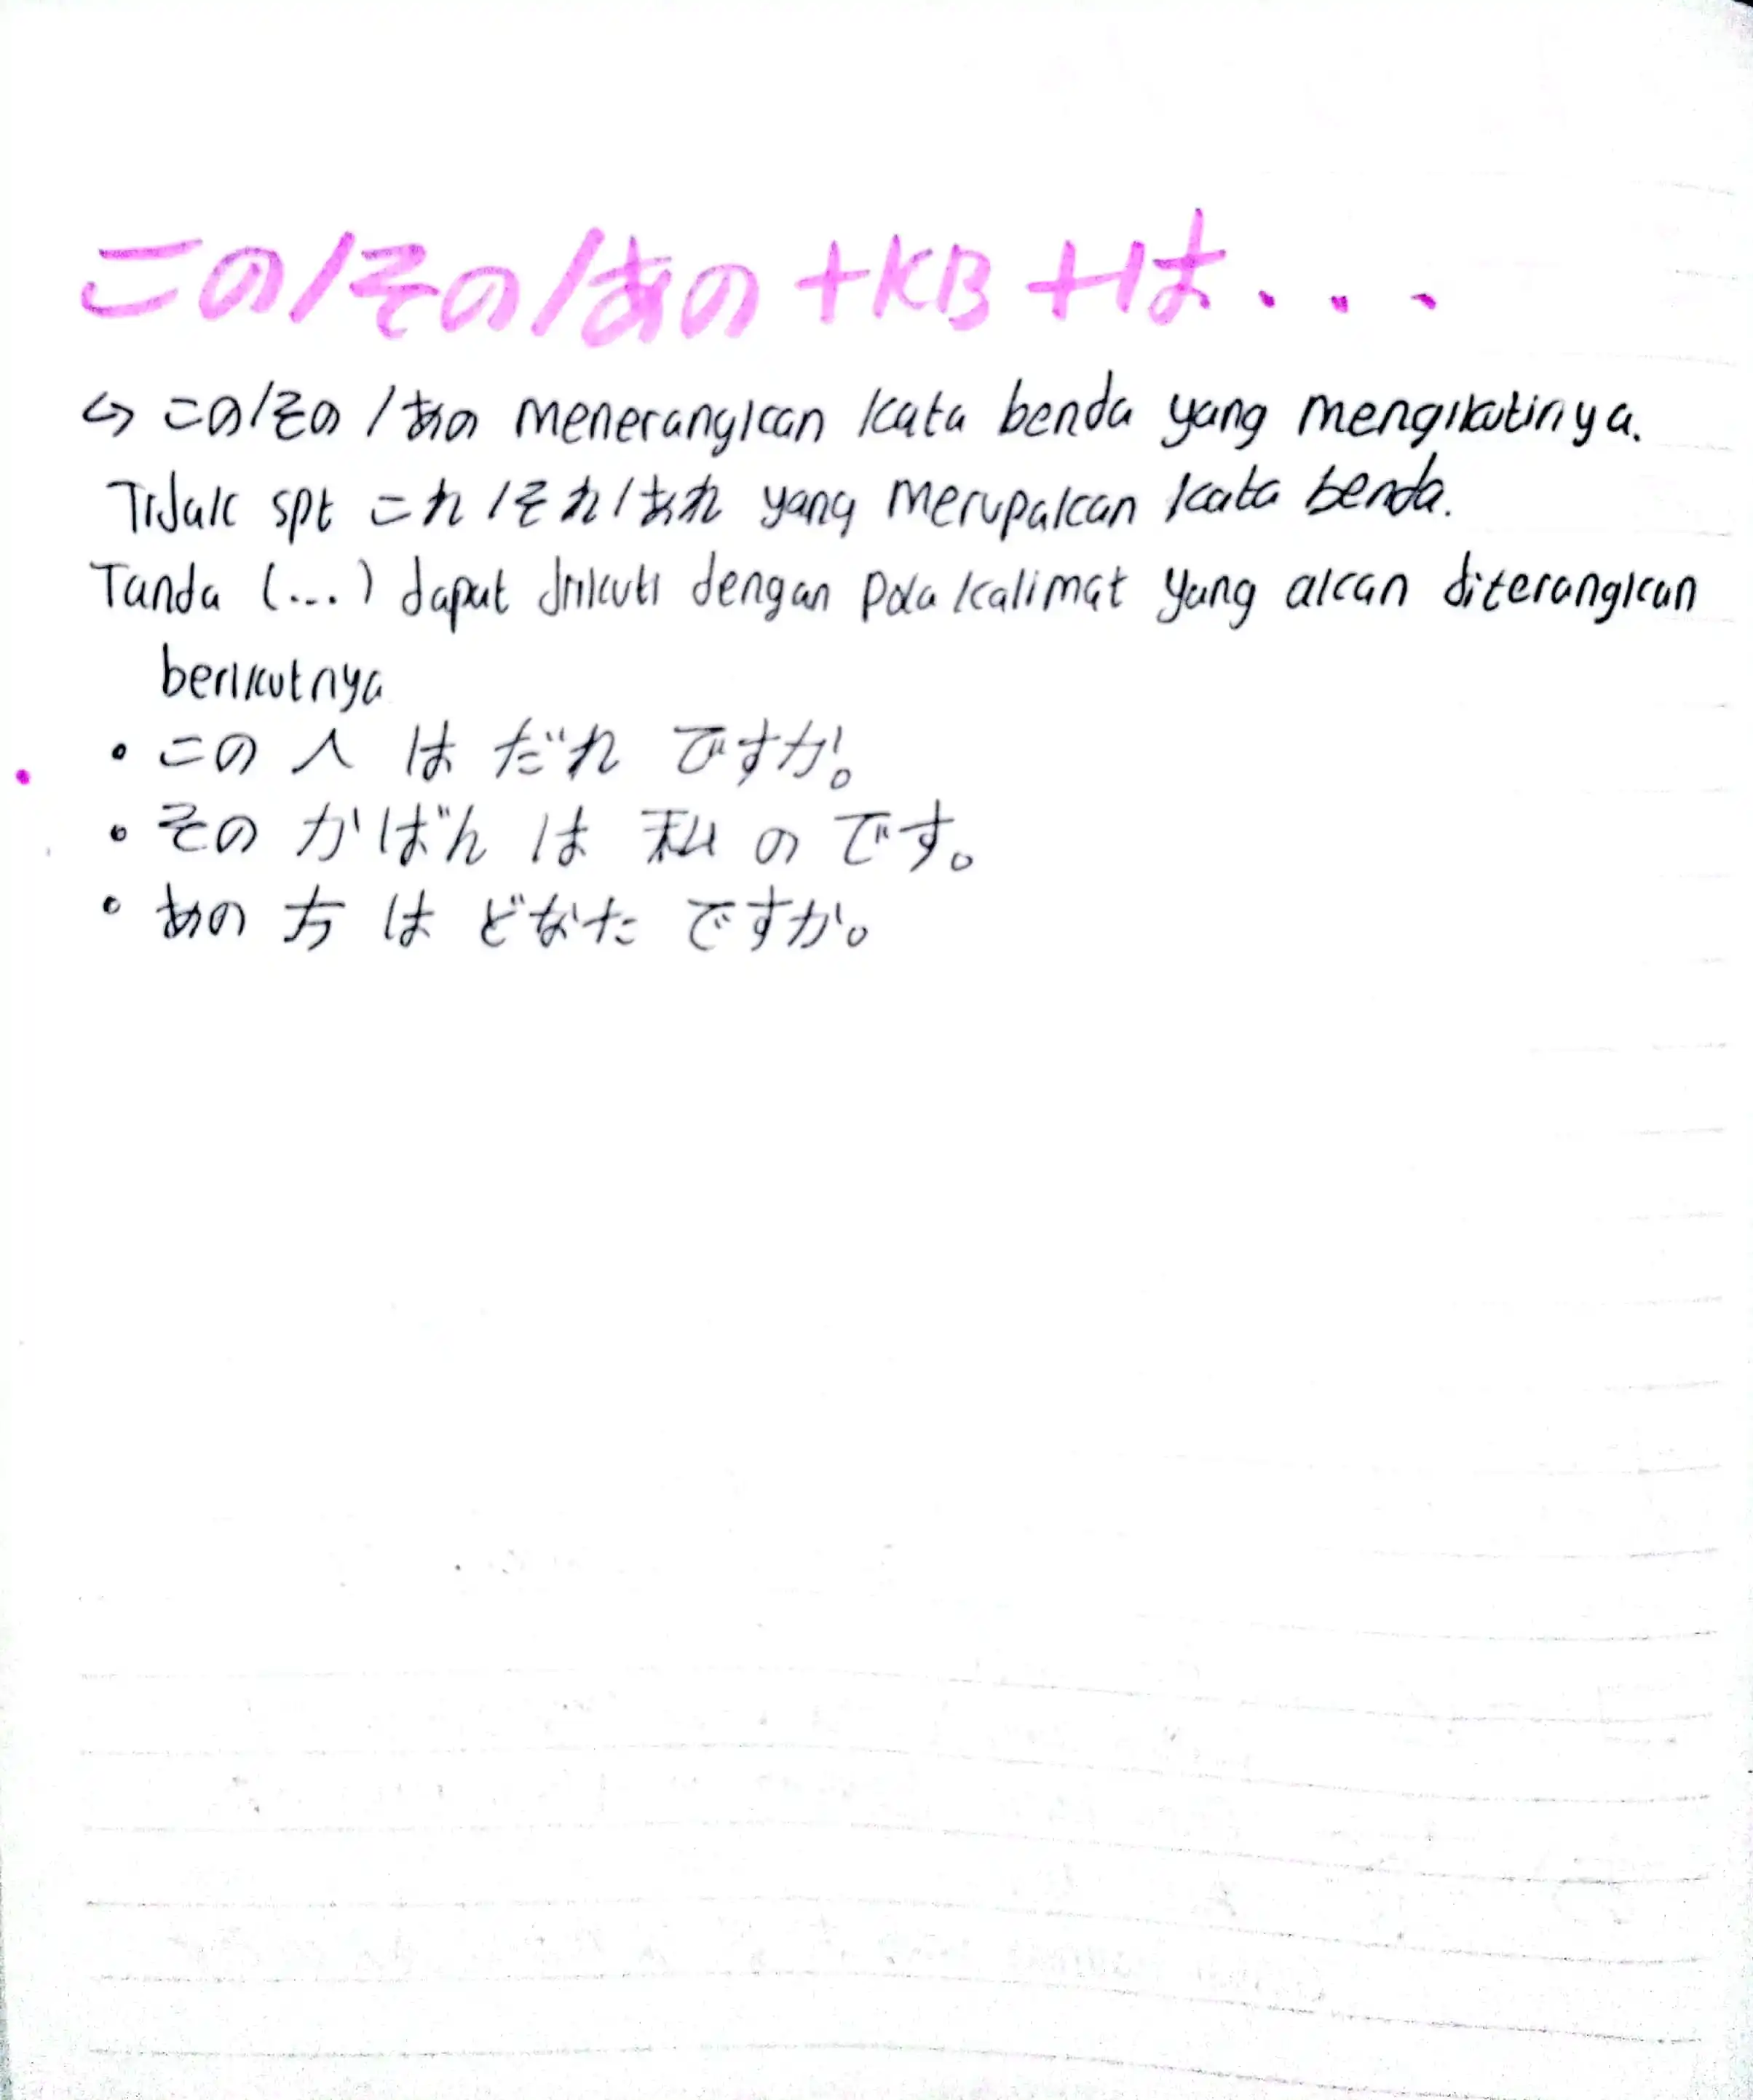 この/その/あの +KB +は...
↪ この/その/あの menerangkan kata benda yang mengikutinya.
Tidak spt これ/それ/あれ yang merupakan kata benda.
Tanda (...) dapat diikuti dengan pola kalimat yang akan diterangkan
berikutnya
• この 人 は だれ ですか。
• その かばん は 私 の です。
• あの 方 は どなた ですか。